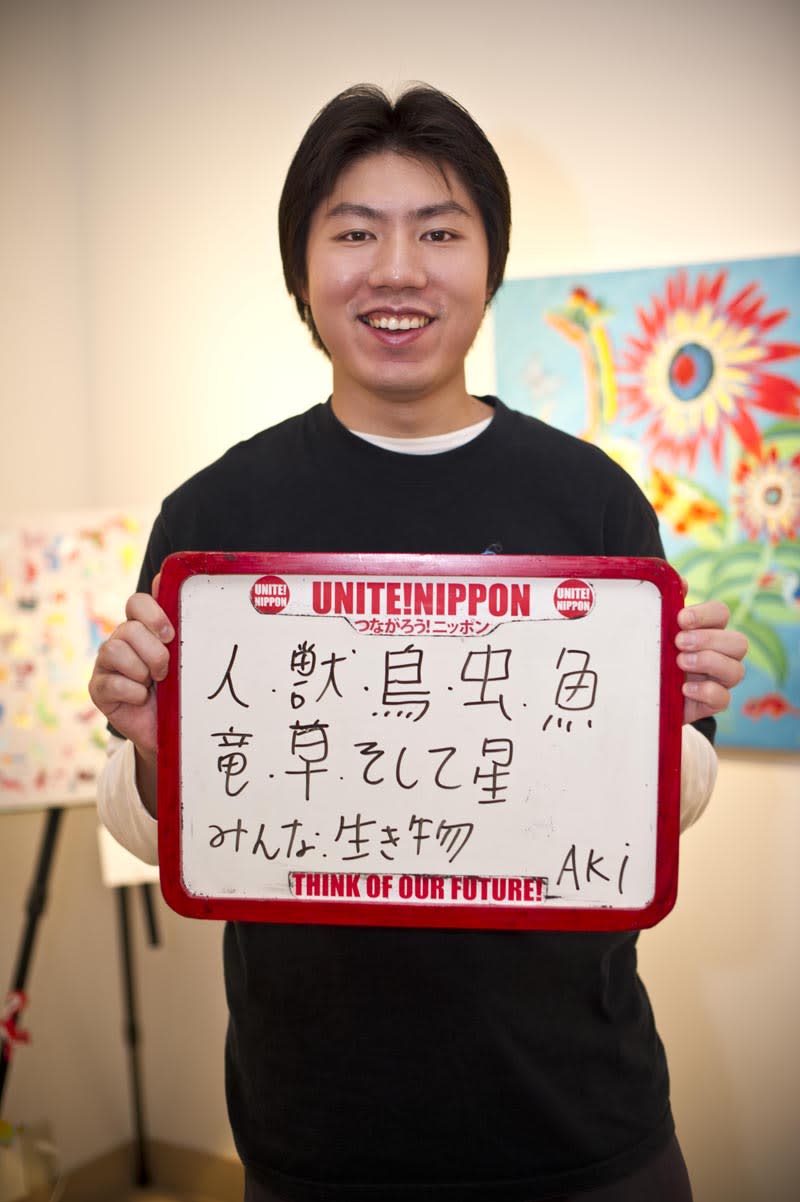 UNITE! NIPPON
UNITE!NIPPON
UNITE! NIPPON
つながろう!ニッポン
人・獣・鳥・虫・魚
竜・草・そして星
みんな・生き物
Aki
THINK OF OUR FUTURE!